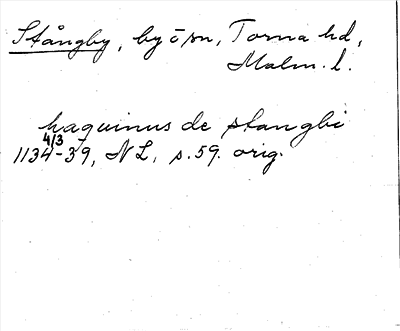 Stångby, by o sn, Torna hd,
Malm. l.
haquinus de stangbi
4/3
1134-39, NL, s. 59. orig.